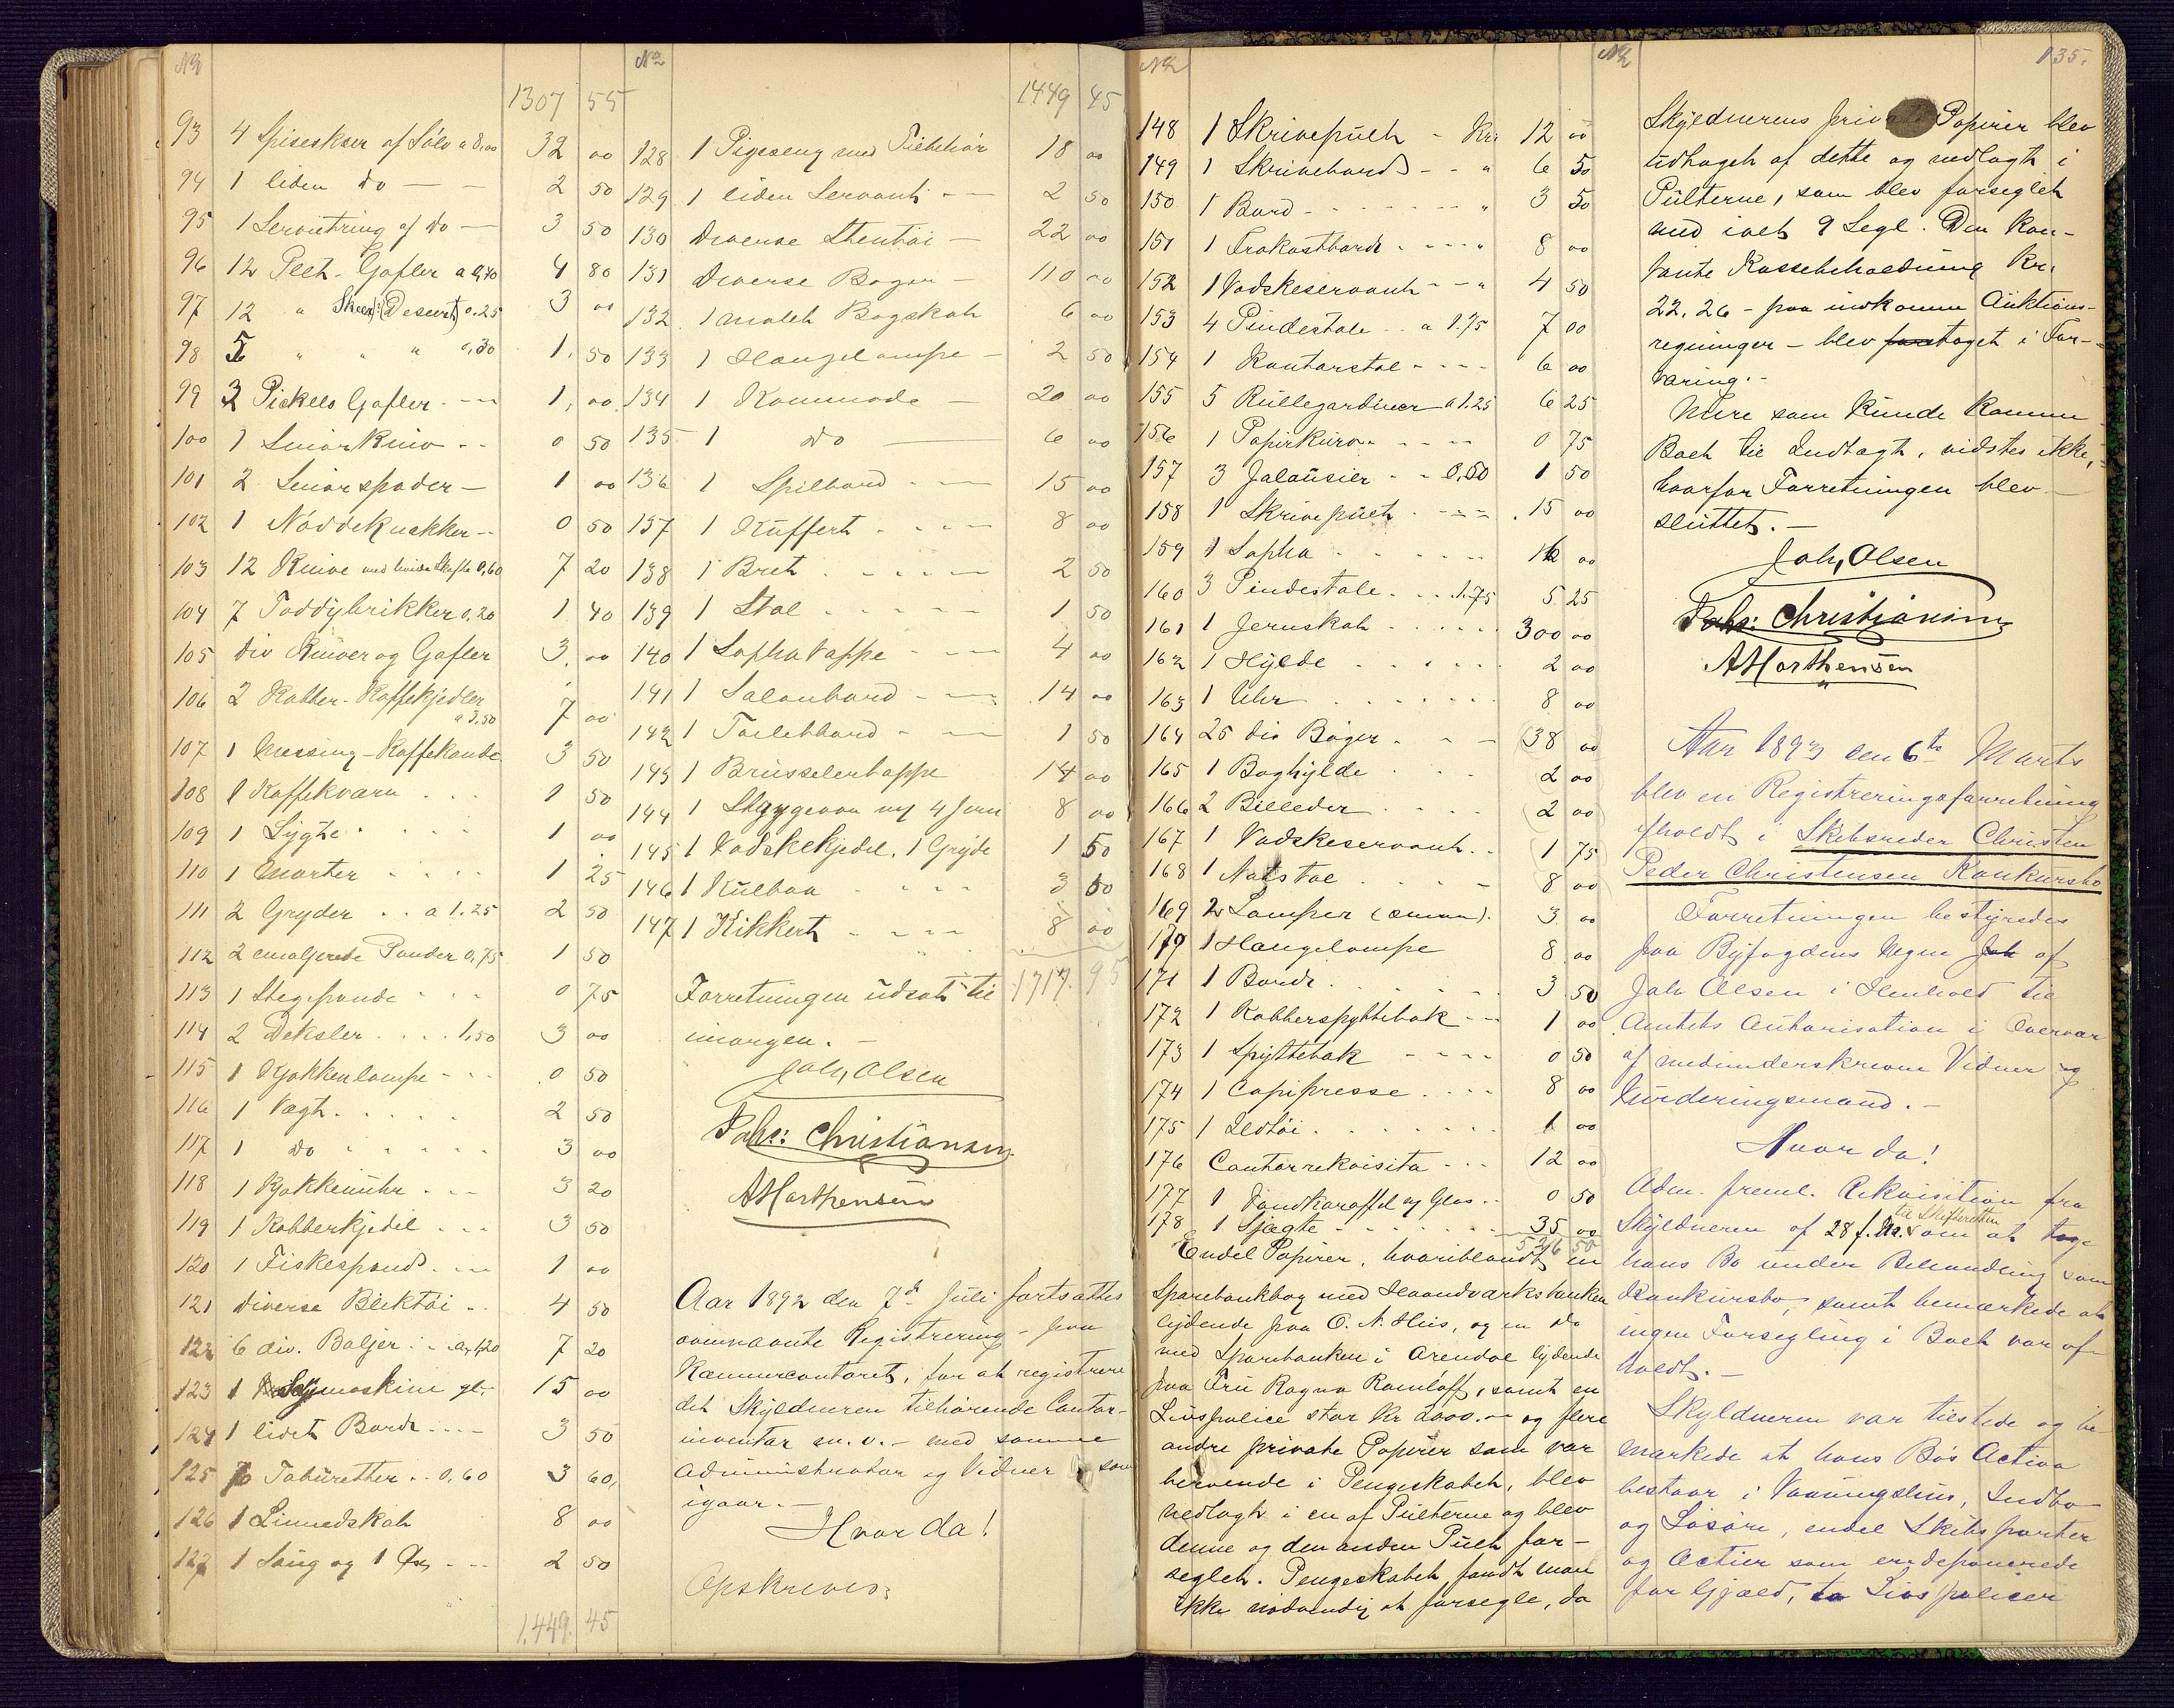 No
1307 55
93 4 Spiseskeer af Sølv a 8,00 32 00
94 1 liden do — — 2 50
95 1 Servietring af do — 3 50
96 12 Plet-Gafler a 0,40 4 80
97 12 " Skeer (Desert) 0,25 3 00
98 5 " " " 0,30 1 50
99 2 Pickels Gafler - — 1,00
100 1 Smørkniv - - 0 50
101 2 Smørspader — 1 00
102 1 Nøddeknækker - - 0 50
103 12 Knive med hvide Skafte 0,60 7 20
104 7 Toddybrikker 0,20 1 40
105 div Kniver og Gafler 3,00
106 2 Kobber-Kaffekjedler a 3,50 7 00
107 1 Messing-Kaffekande 3 50
108 1 Kaffekværn . . . 1 50
109 1 Lygte . . . . 1 00
110 1 Morter . . . . 1 25
111 2 Gryder . . a 1.25 2 50
112 2 emaljerede Pander 0,75 1 50
113 1 Stegepande . . . 0 75
114 2 Deksler . . . . 1,50 3 00
115 1 Kjøkkenlampe - . . 0 50
116 1 Vægt . . . . . 2 50
117 1 do . . . . . 3 00
118 1 Kjøkkenuhr . - - 3 20
119 1 Kobberkjedel . . . 3 50
120 1 Fiskespand . — 1 00
121 diverse Bliktøi - . 4 50
122 6 div. Baljer . . a 1,20 7 20
123 1 Symaskine gl. - 15 00
124 1 lidet Bord . . — 3 50
125 6 Taburetter . . 0,60 3 60
126 1 Linnedskab 8 00
127 1 Saug og 1 Øx - — 2 50
1,449.45
No
1449 45
128 1 Pigeseng med Tilbehør 18 00
129 1 liden Servant - — 2 50
130 diverse Stentøi — 22 00
131 diverse Bøger — 110 00
132 1 malet Bogskab 6 00
133 1 Hængelampe — 2 50
134 1 Kommode — 20 00
135 1 do — 6 00
136 1 Spilbord - — 15 00
137 1 Kuffert - - — 8 00
138 1 Bret . - - - — 2 50
139 1 Stol . . - - - 1 50
140 1 Sophatæppe - — 4 00
141 1 Salonbord - — 14 00
142 1 Toiletbord - — 1 50
143 1 Brüsselertæppe 14 00
144 1 Strygeovn m/ 4 Jern 8 00
145 1 Vadskekjedel, 1 Gryde 1 50
146 1 Kulbox - - - - 3 50
147 1 Kikkert - - - — 8 00
Forretningen udsat til 1717.95
imorgen. —
Joh, Olsen
Johs: Christiansen
A Morthensen
Aar 1892 den 7de Juli fortsattes
ovennævnte Registrering - paa
Kæmnercontoret, for at registrere
det Skyldneren tilhørende Contor-
inventar m. v. — med samme
Administrator og Vidner som
igaar. —
Hvor da!
Opskreves:
No
148 1 Skrivepult - Kr. 12 00
149 1 Skrivebord - - " 6 50
150 1 Bord - - - - - - " 3 50
151 1 Frokostbord . - - - " 8 00
152 1 Vadskeservant - - " 4 50
153 4 Pindestole . . a 1.75 7 00
154 1 Kontorstol - - - - 6 00
155 5 Rullegardiner a 1.25 6 25
156 1 Papirkurv . - - - - 0 75
157 3 Jalousier - - 0,50 1 50
158 1 Skrivepult . - - - . 15 00
159 1 Sopha . . . . . . 16 00
160 3 Pindestole . . . 1.75 5 25
161 1 Jernskab . . . . . . 300 00
162 1 Hylde . . . . . . 2 00
163 1 Uhr . . . . . . . 8 00
164 25 div Bøger . - - 38 00
165 1 Boghylde . . . 2 00
166 2 Billeder . . . . 2 00
167 1 Vadskeservant . . 1 75
168 1 Natstol . . . - 8 00
169 2 Lamper (Amun). 3 00
170 1 Hængelampe 8 00
171 1 Bord . . . . . . . 3 50
172 1 Kobberspyttebak - - 1 00
173 1 Spyttebak - - - - 0 50
174 1 Copipresse . . . . 8 00
175 1 Ildtøi . . . . . . . 1 00
176 Contorrekvisita - - - 12 00
177 1 Vandkaraffel og Glas . . 0 50
178 1 Sjægte - - - - - - 35 00
526 50
Endel Papirer, hvoriblandt en
Sparebankbog med Haandværksbanken
lydende paa O. N. Hiis, og en do
med Sparebanken i Arendal lydende
paa Fru Ragna Romløff, samt en
Livspolice stor Kr 2000.— og flere
andre private Papirer som var
beroende i Pengeskabet, blev
nedlagt i en af Pulterne og blev
denne og den anden Pult for-
seglet. Pengeskabet fandt man
ikke nødvendig at forsegle, da
No
135.
Skyldnerens private Papirer blev
udtaget af dette og nedlagt i
Pulterne, som blev forseglet
med ialt 9 Segl. Den kon-
tante Kassebeholdning Kr.
22,26 - paa indkomne Auktions-
regninger - blev taget i For-
varing. -
Mere som kunde komme
Boet til Indtægt, vidstes ikke,
hvorfor Forretningen blev —
sluttet. —
Joh, Olsen
Johs: Christiansen
A Morthensen
Aar 1893 den 6te Marts
blev en Registreringsforretning
afholdt i Skibsreder Christen
Peder Christensen Konkursbo
Forretningen bestyredes
paa Byfogdens Vegne af
Joh Olsen i Henhold til
Amtets Autorisation i Overvær
af medunderskrevne Vidner og
Vurderingsmænd. —
Hvor da!
Adm. freml. Rekvisition fra
Skyldneren af 28 f. M. til Skifteretten om at tage
hans Bo under Behandling som
Konkursbo, samt bemærkede at
ingen Forsegling i Boet var af-
holdt. —
Skyldneren var tilstede og be-
mærkede at hans Bo's Activa
bestaar i Vaaningshus, Indbo
og Løsøre, endel Skibsparter
og Actier som er deponerede
for Gjæld, to Livspolicer